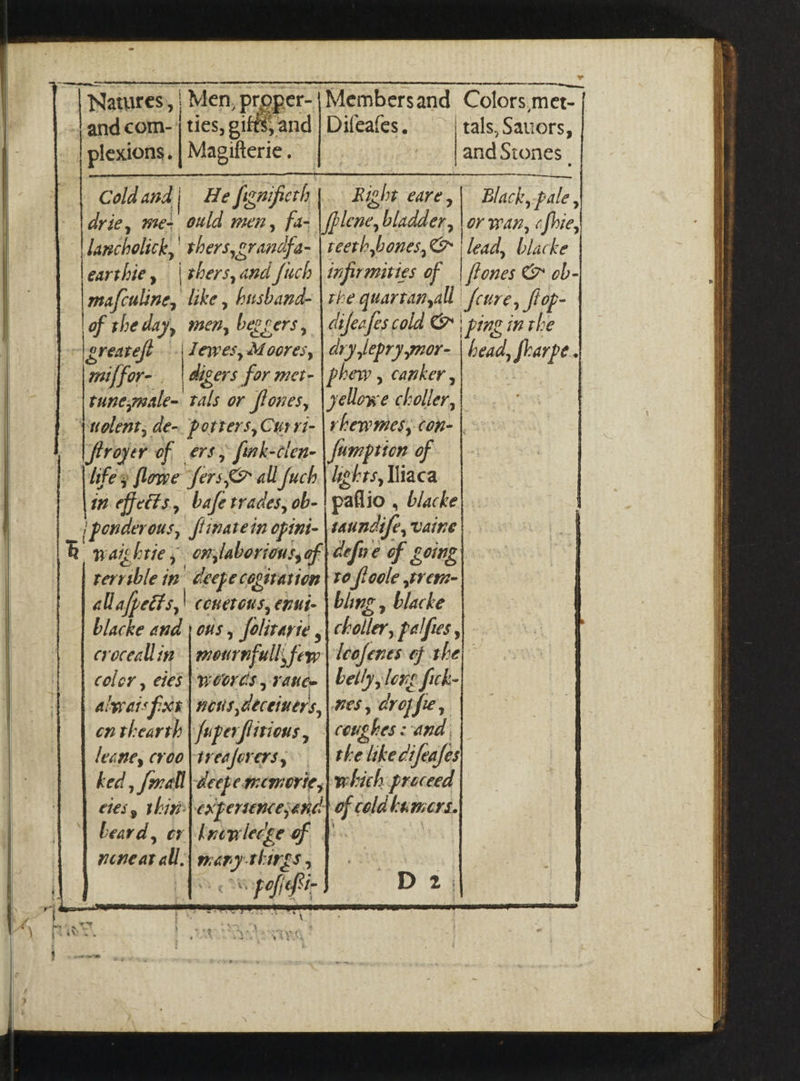 Natures,
and com-
plexions.
Men, proper-
ties, gifts, and
Magisterie.
Members and
Diſeaſes.
Colors, met-
tals, Sauors,
and Stones.
Cold and
drie, me-
lancholick,
earthie,
maſculine,
of the day,
greateſt
miſfor-
tune, male-
uolent, de-
ſtroyer of
life, ſlowe
in effects,
ponderous,
♄ waightie,
terrible in
all aſpects,
blacke and
croceall in
color, eies
alwais fixt
on thearth
leane, croo
ked, ſmall
eies, thin
beard, or
none at all.
He ſignifieth
ould men, fa-
thers, grandfa-
thers, and ſuch
like, husband-
men, beggers,
Iewes, Moores,
digers for met-
tals or ſtones,
potters, Curri-
ers, ſink-clen-
ſers, & all ſuch
baſe trades, ob-
ſtinate in opini-
on, laborious, of
deepe cogitation
couetous, enui-
ous, ſolitarie,
mournfull, few
woords, rauc-
nous, deceiuers,
ſuperſtitious,
treaſorers,
deepe memorie,
experience, and
knowledge of
many things,
poſſeſſi-
Right eare,
ſplene, bladder,
teeth, bones, &
infirmities of
the quartan, all
diſeaſes cold &
dry, lepry, mor-
phew, canker,
yellowe choller,
rhewmes, con-
ſumption of
lights, Iliaca
paſſio, blacke
iaundiſe, vaine
deſire of going
to ſtoole, trem-
bling, blacke
choller, palſies,
looſenes of the
belly, long ſick-
nes, dropſie,
coughes: and
the like diſeaſes
which proceed
of cold humors.
Black, pale,
or wan, aſhie,
lead, blacke
ſtones & ob-
ſcure, ſtop-
ping in the
head, ſharpe.
D 2